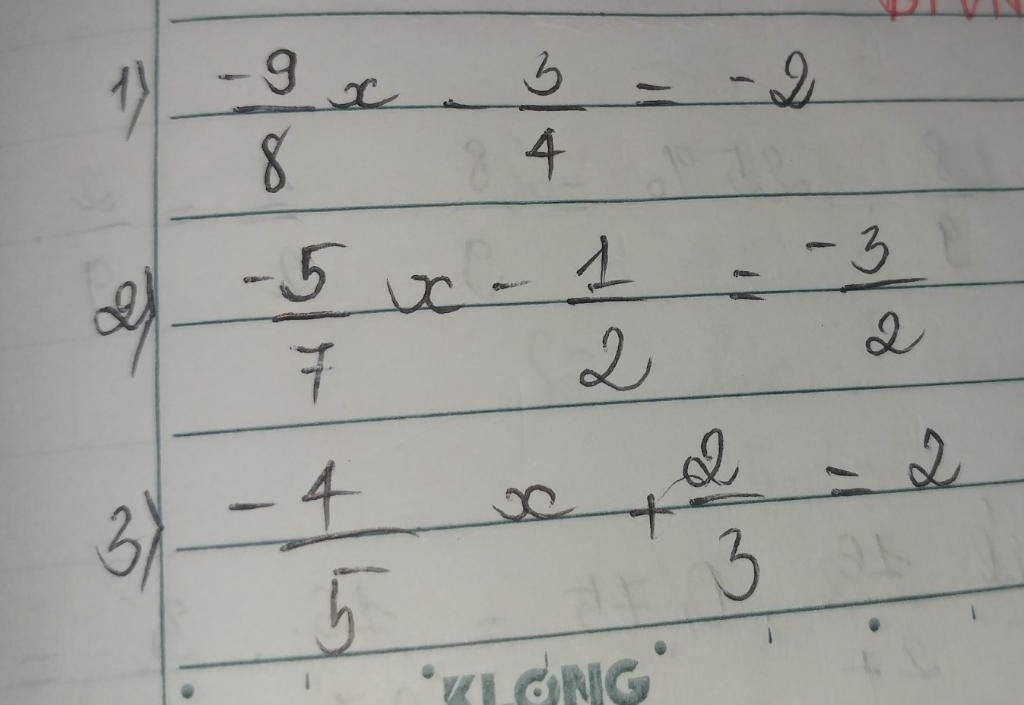 1) -9/8 x - 3/4 = -2
2) -5/7 x - 1/2 = -3/2
3) -4/5 x + 2/3 = 2
KLONG